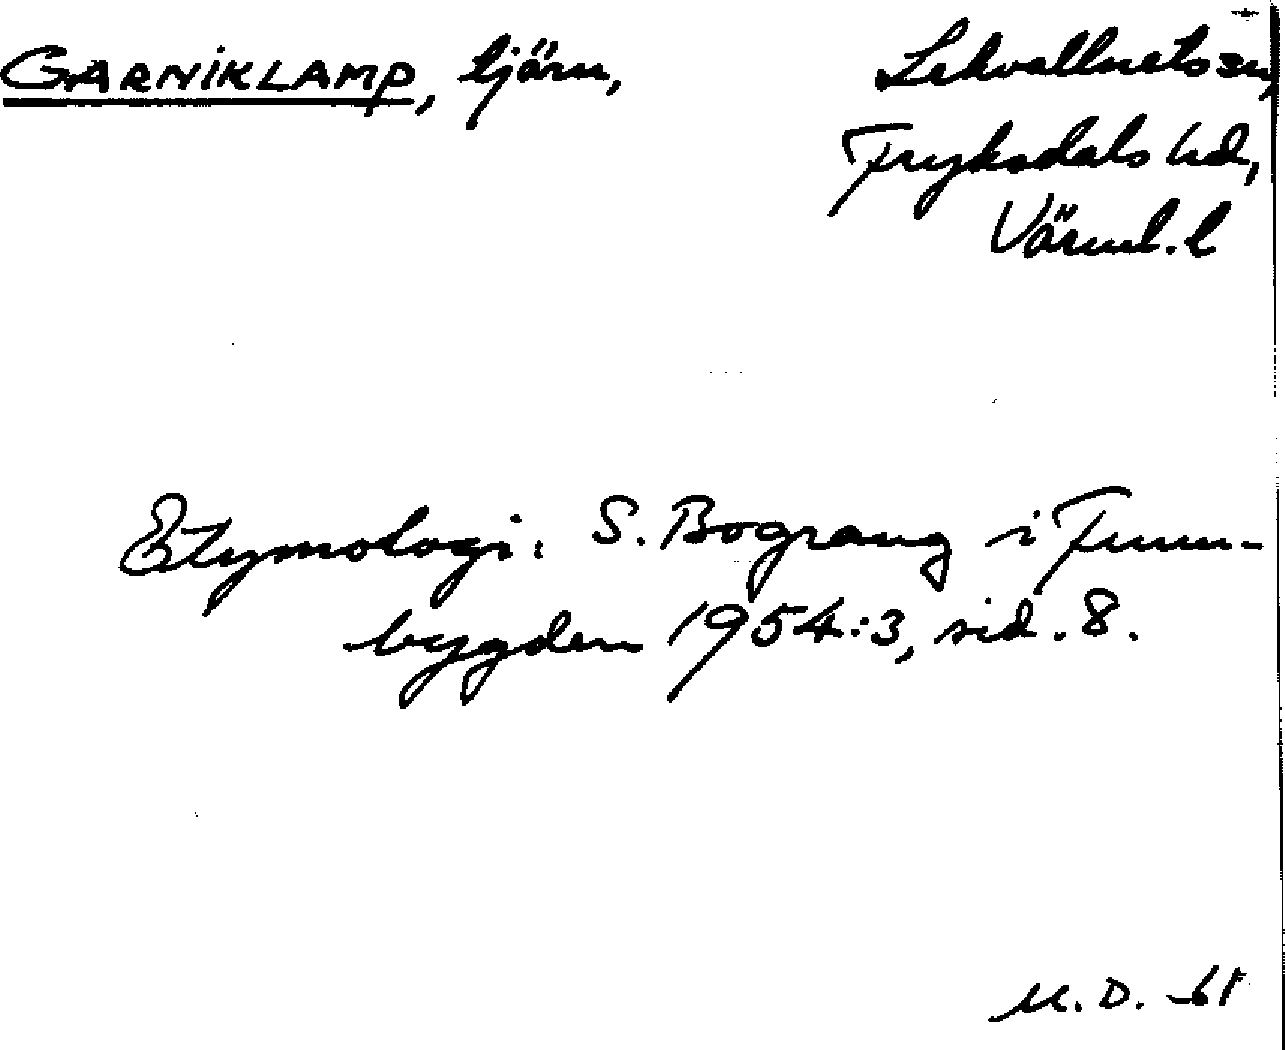 GARNIKLAMP, tjärn, Lekvattnets sn,
Fryksdals hd,
Värml. l
Etymologi: S. Bograng i Finn-
bygden 1954:3, sid. 8.
M. D. -61